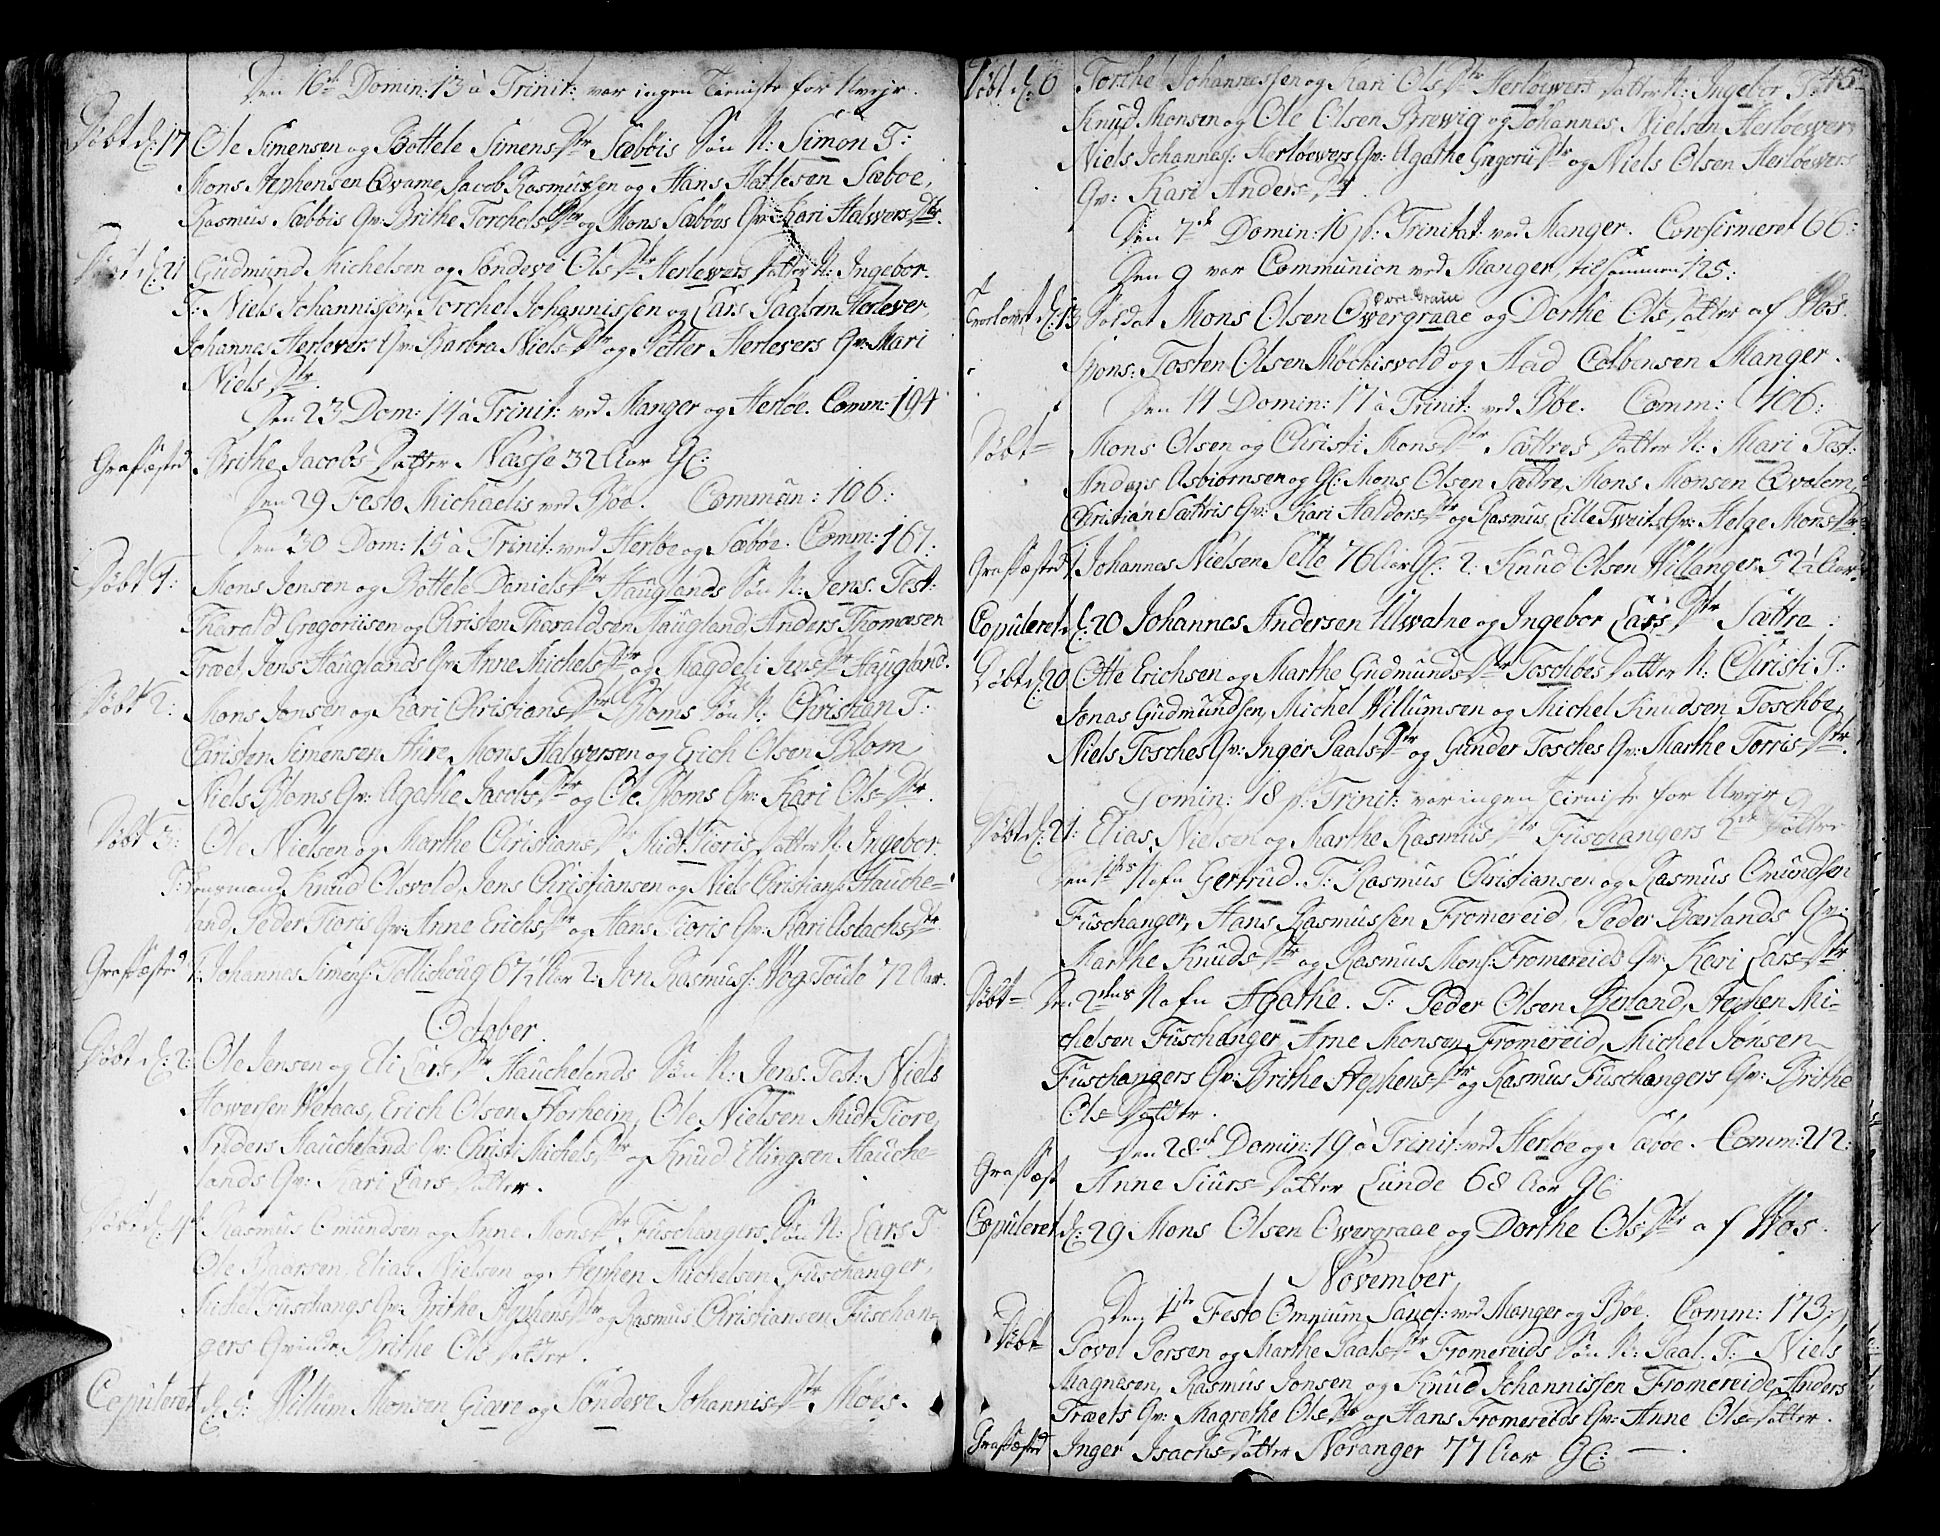 Den 16de Domin: 13 à Trinit: var ingen Tieniste for Uvejr.
Døbt d: 17 Ole Simensen og Bottele Simens Dtr Sæbbis Søn N: Simon T:
Mons Stephensen Qvame, Jacob Rasmussen og Hans Hattlesen Sæboe,
Rasmus Sæbbis Qv: Brithe Torchels Dtr og Mons Sæbbøs Qv: Kari Halvors Dtr.
Døbt d: 21 Gudmund Michelsen og Søndeve Ols Dtr Herlevers Datter N: Ingebor.
T: Niels Johannissen, Torchel Johannissen og Lars Paalsen Herlever,
Johannes Herlevers Qv: Barbra Niels Dtr og Petter Herlevers Qv: Mari
Niels Dtr.
Den 23 Dom: 14 à Trinit: ved Manger og Herløe. Comm: 194
Græsfæsted Brithe Jacobs Datter Nasse 32 Aar Gl:
Den 29 Festo Michaelis ved Bøe. Commun: 106:
Den 30 Dom: 15 à Trinit: ved Herløe og Sæbøe. Comm: 167:
Døbt 1: Mons Jensen og Bottele Daniels Dtr Hauglands Søn N: Jens. Test:
Tharald Gregoriisen og Christen Tharaldsen Haugland Anders Thomesen
Træet, Jens Hauglands Qv: Anne Michels Dtr og Magdeli Jens Dtr Haugland.
Døbt 2: Mons Jonsen og Kari Christians Dtr Bloms Søn N: Christian T:
Christen Simensen Hire, Mons Halversen og Erich Olsen Blom,
Niels Bloms Qv: Agathe Jacobs Dtr og Ole Bloms Qv: Kari Ols Dtr.
Døbt 3: Ole Nielsen og Marthe Christians Dtr Midt Fioris Datter N: Ingebor.
T: Knud Olsvold, Jens Christiansen og Niels Christians: Hauche-
land, Peder Fioris Qv: Anne Erichs Dtr og Hans Fioris Qv: Kari Aslachs Dtr.
Græsfæsted 1: Johannes Simens: Tollichoug 67½ Aar 2: Jon Rasmuss: Wog-Toule 72 Aar.
October.
Døbt d: 2: Ole Jensen og Eli Lars Dtr Hauchelands Søn N: Jens. Test: Niels
Howersen Wetaas, Erich Olsen Horheim, Ole Nielsen Midt Fiore,
Anders Hauchelands Qv: Christi Michels Dtr og Knud Ellingsen Hauche-
lands Qv: Kari Lars Datter.
Døbt d: 4de Rasmus Omundsen og Anne Mons Dtr Fuschangers Søn N: Lars T:
Ole Baarsen, Elias Nielsen og Stephen Michelsen Fuschanger,
Michel Fuschangs Qv: Brithe Stephens Dtr og Rasmus Christiansen Fuschan-
gers Qvinde Brithe Ols Datter.
Copuleret d: 5: Willum Monsen Giære og Søndeve Johannis Dtr Moes.
45
Døbt d: 6 Torchel Johannessen og Kari Ols Dtr Herløevers Datter N: Ingebor T:
Knud Monsen og Ole Olsen Brewig og Johannes Nielsen Herløewer,
Niels Johanness: Herloewers Qv: Agathe Gregorii Dtr og Niels Olsen Herløewers
Qv: Kari Anders Dtr.
Den 7de Domin: 16 p: Trinitat: ved Manger. Confirmeret 66:
Den 9 var Communion ved Manger, tilsammen 125:
Trorlovet d: 13 Soldat Mons Olsen Owergraae og Dorthe Ols Datter af Wos.
Spons: Tosten Olsen Mochisvold og Aad Colbensen Manger.
Den 14 Domin: 17 à Trinit: ved Bøe. Comm: 106:
Døbt= Mons Olsen og Christi Mons Dtr Sættres Datter N: Mari Test:
Anders Asbiørnsen og Gl: Mons Olsen Sædre, Mons Monsen Qvalem,
Christian Sættris Qv: Kari Haldors Dtr og Rasmus Lille Tweits Qv: Helge Mons Dtr.
Græsfæsted 1. Johannes Nielsen Selle 76 Aar Gl: 2. Knud Olsen Willanger 52½ Aar:
Copuleret d: 20 Johannes Andersen Ulwatne og Ingebor Lars Dtr Sættre:
Døbt d: 20 Otte Erichsen og Marthe Gudmunds Dtr Toschøes Datter N: Christi T:
Jonas Gudmundsen, Michel Willumsen og Michel Knudsen Toschøe,
Niels Tosches Qv: Inger Paals Dtr og Gunder Tosches Qv: Marthe Torris Dtr.
Domin: 18 p: Trinit: var ingen Tieniste for Uvejr
Døbt d: 21: Elias Nielsen og Marthe Rasmus Dtr Fuschangers 2de Døttre
Den 1stes Nafn Gertrud. T: Rasmus Christiansen og Rasmus Omundsen
Fuschanger, Hans Rasmussen Fromereid, Peder Bærlands Qv:
Marthe Knuds Dtr og Rasmus Mons: Fromereids Qv: Kari Lars Dtr.
Døbt= Den 2dens Nafn Agathe. T: Peder Olsen Berland, Stephen Mi-
chelsen Fuschanger, Arne Monsen Fromereid, Michel Jonsen
Fuschangers Qv: Brithe Stephens Dtr og Rasmus Fuschangers Qv: Brithe
Ols Datter.
Den 28de Domin: 19 à Trinit: ved Herløe og Sæbøe. Comm: 212:
Græsfæst Anne Siurs Datter Lunde 68 Aar Gl:
Copuleret d: 29 Mons Olsen Owergraae og Dorthe Ols Dtr af Wos.
November.
Den 1ste Festo Omnium Sanct: ved Manger og Bøe. Comm: 173:
Døbt Povel Persen og Marthe Paals Dtr Fromereids Søn N: Paal. T: Niels
Magnesen, Rasmus Jonsen og Knud Johannissen Fromereide, Anders
Træets Qv: Magrethe Ols Dtr og Hans Fromereids Qv: Anne Ols Datter.
Græsfæsted Inger Isachs Datter Noranger 77 Aar Gl: